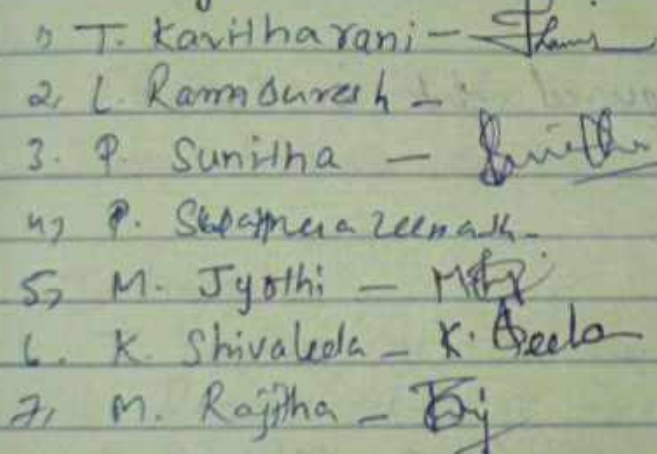 1) T. Kavitharani -
2, L. Ramasuresh -
3. P. Sunitha - Sunitha
4, P.
5, M. Jyothi -
6. K. Shivaleela - K. Leela
7, M. Rajitha -